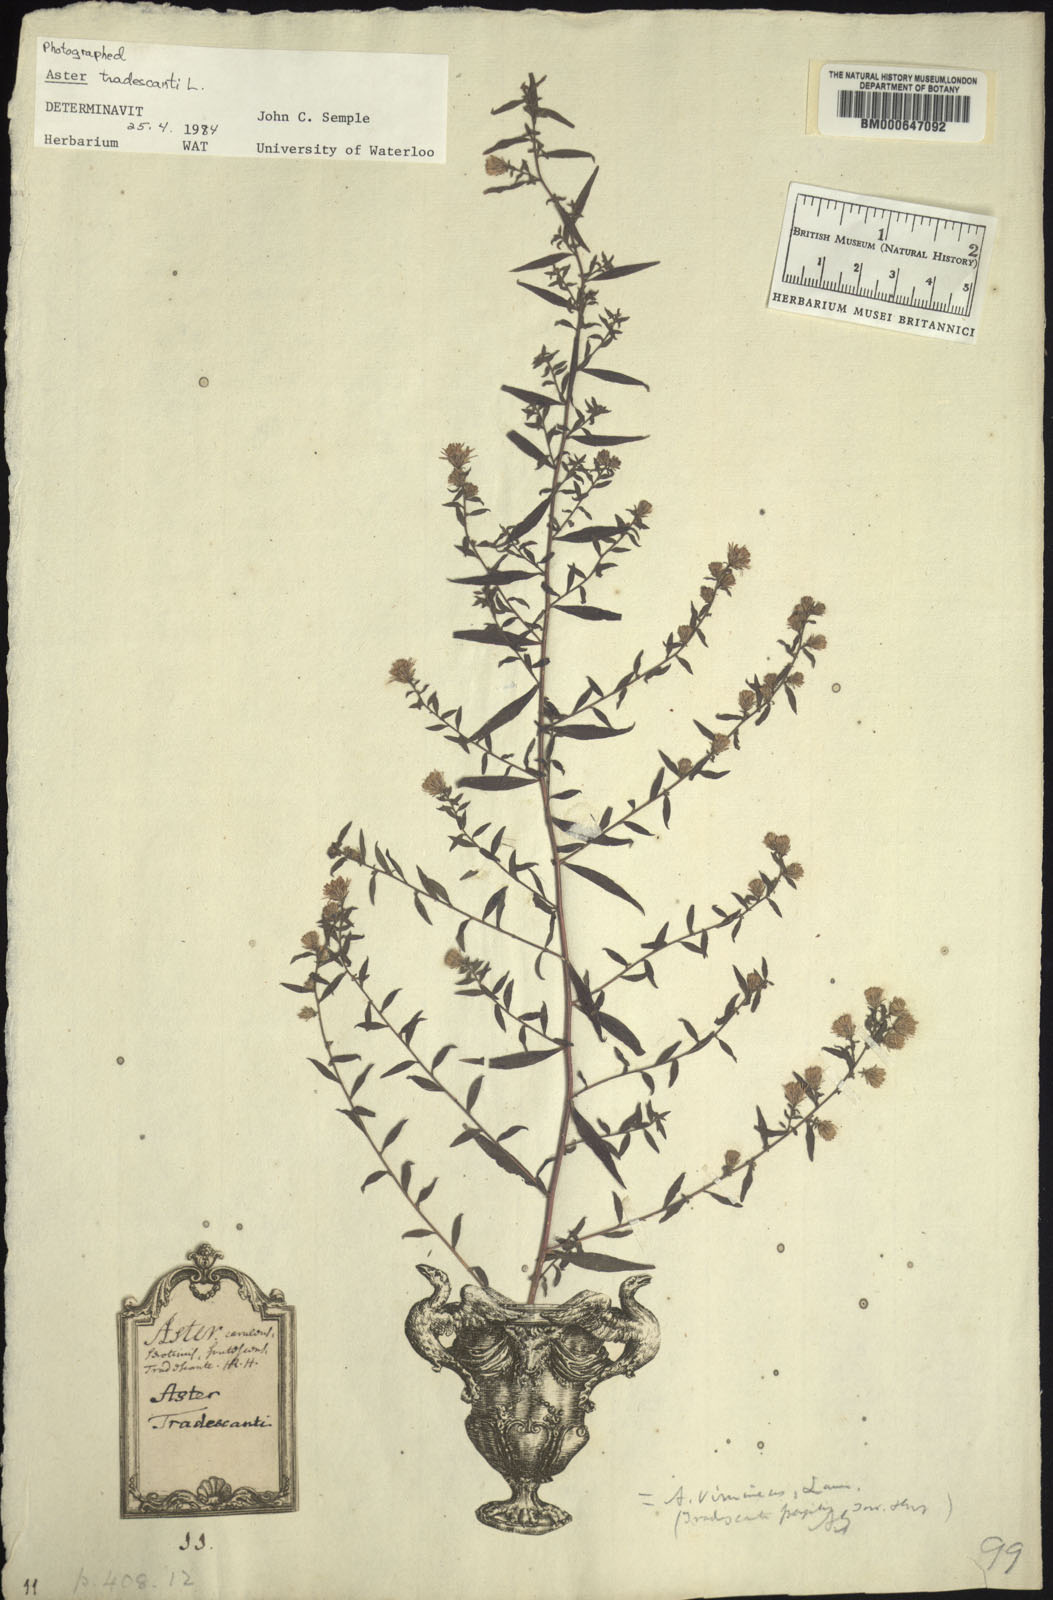 Photographed
Aster tradescanti L.
DETERMINAVIT
25. 4. 1984
John C. Semple
Herbarium WAT University of Waterloo
THE NATURAL HISTORY MUSEUM, LONDON
DEPARTMENT OF BOTANY
BM000647092
1 2
BRITISH MUSEUM (NATURAL HISTORY)
1 2 3 4 5
HERBARIUM MUSEI BRITANNICI
Aster
Aster
Tradescanti
= A. vimineus, Lam.
11.
99
11 p. 408. 12